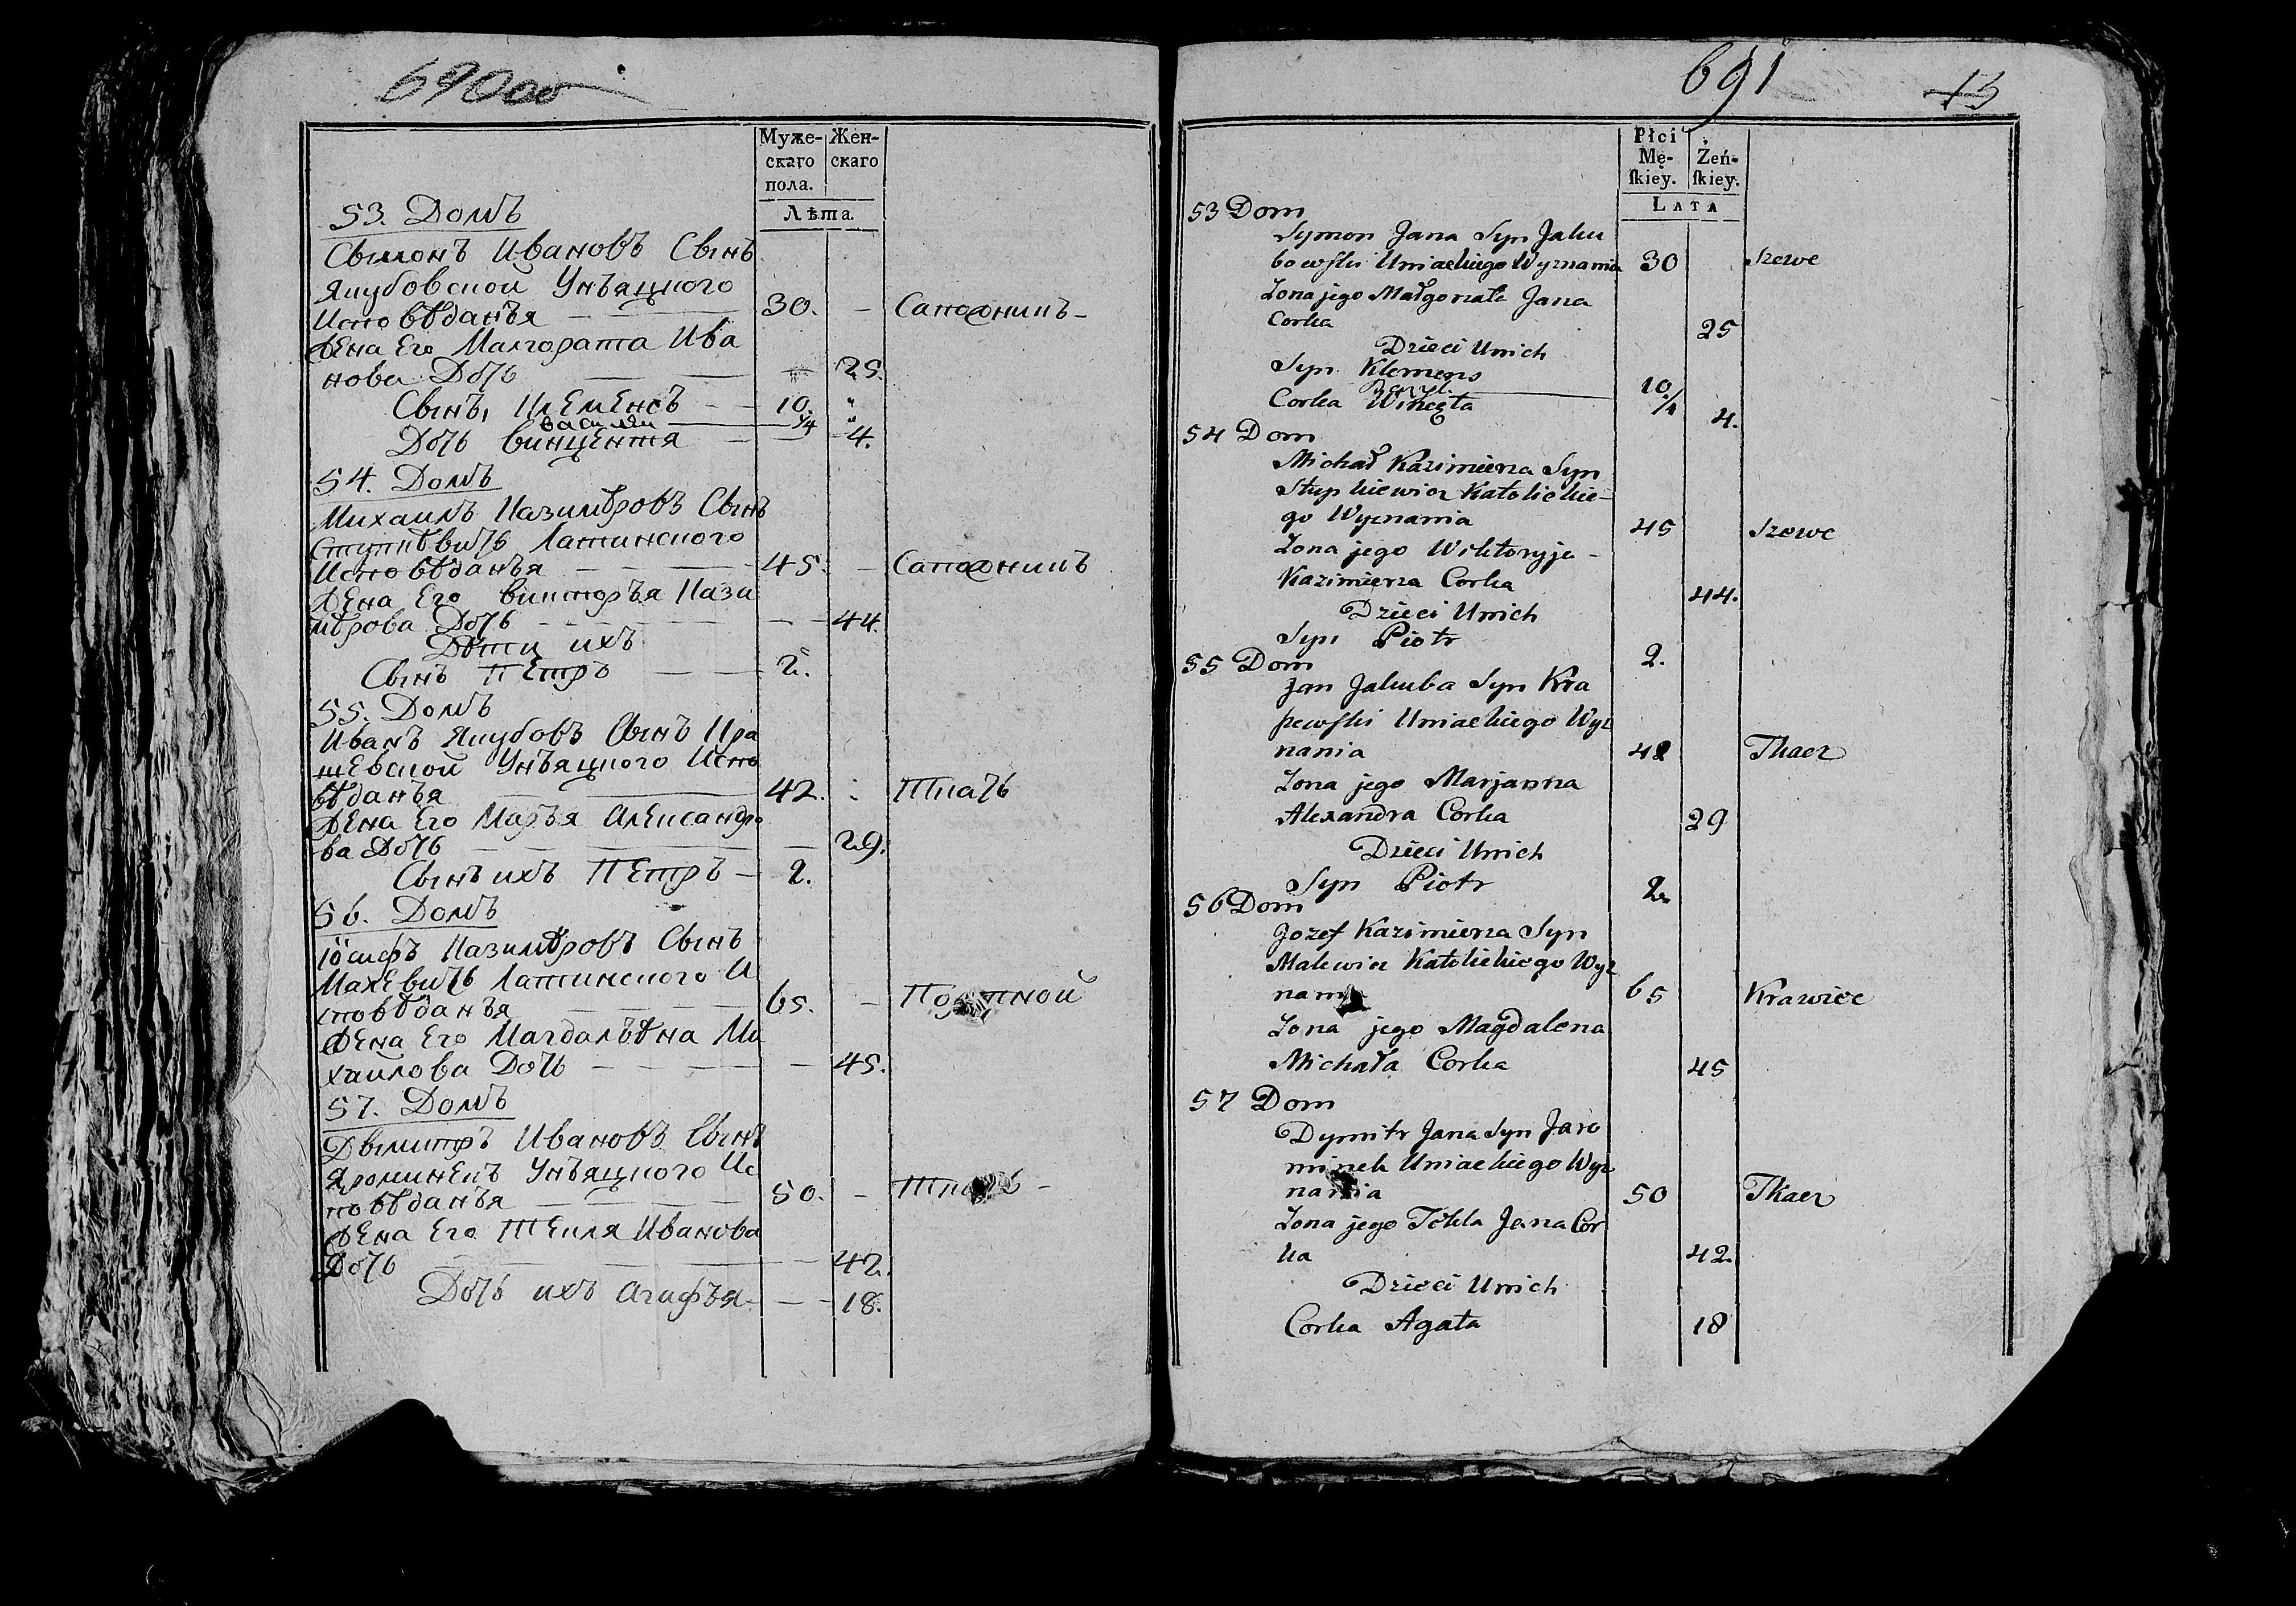 690об
Муже-
скаго
пола.
Жен-
скаго
Лѣта.
53. Домъ
Сымонъ Ивановъ Сынъ
Якубовской Унъяцкого
Исповѣданъя 30. — Сапожникъ
Жена Его Малгората Ива
нова Дочь 25.
Сынъ, Клеменсъ 10. "
Васили 1/4 "
Дочь Винцента 4.
54. Домъ
Михаилъ Казимѣровъ Сынъ
Ступкѣвичь Латинского
Исповѣданъя 45. — Сапожникъ
Жена Его Викторъя Кази
мѣрова Дочь 44.
Дѣти ихъ
Сынъ Петръ 2.
55. Домъ
Иванъ Якубовъ Сынъ Кра
шевской Унъяцкого Испо
вѣданъя 42. Ткачь
Жена Его Маръя Александро
ва Дочь 29.
Сынъ ихъ Петръ 2.
56. Домъ
Іосифъ Казимѣровъ Сынъ
Малевичь Латинского И
сповѣданъя 65. —
Жена Его Магдалѣна Ми
хаилова Дочь 45.
57. Домъ
Дымитръ Ивановъ Сынъ
Яроминекъ Унъяцкого Ис
повѣданъя 50. — Ткачь
Жена Его Текля Иванова
Дочь 42.
Дочь ихъ Агафъя 18.
691
13
Płci
Mę-
ſkiey.
Żeń-
ſkiey.
LATA
53 Dom
Symon Jana Syn Jaku
bowſki Uniackiego Wyznania 30 Szewc
Zona jego Małgorzata Jana
Corka 25
Dzieci Unich
Syn Klemens 10
Bazyl. 1/4
Corka Wincęta 4.
54 Dom
Michał Kazimierza Syn
Stupkiewicz Katolickie-
go Wyznania 45 Szewc
Zona jego Wiktoryja
Kazimierza Corka 44.
Dzieci Unich
Syn Piotr 2.
55 Dom
Jan Jakuba Syn Kra
szewſki Uniackiego Wyz
nania 42 Tkacz
Zona jego Marjanna
Alexandra Corka 29
Dzieci Unich
Syn Piotr 2.
56 Dom
Jozef Kazimierza Syn
Malewicz Katolickiego Wyz
nania 65 Krawiec
Zona jego Magdalena
Michała Corka 45
57 Dom
Dymitr Jana Syn Jaro
minek Uniackiego Wyz
nania 50 Tkacz
Zona jego Tekla Jana Cor
ka 42.
Dzieci Unich
Corka Agata 18